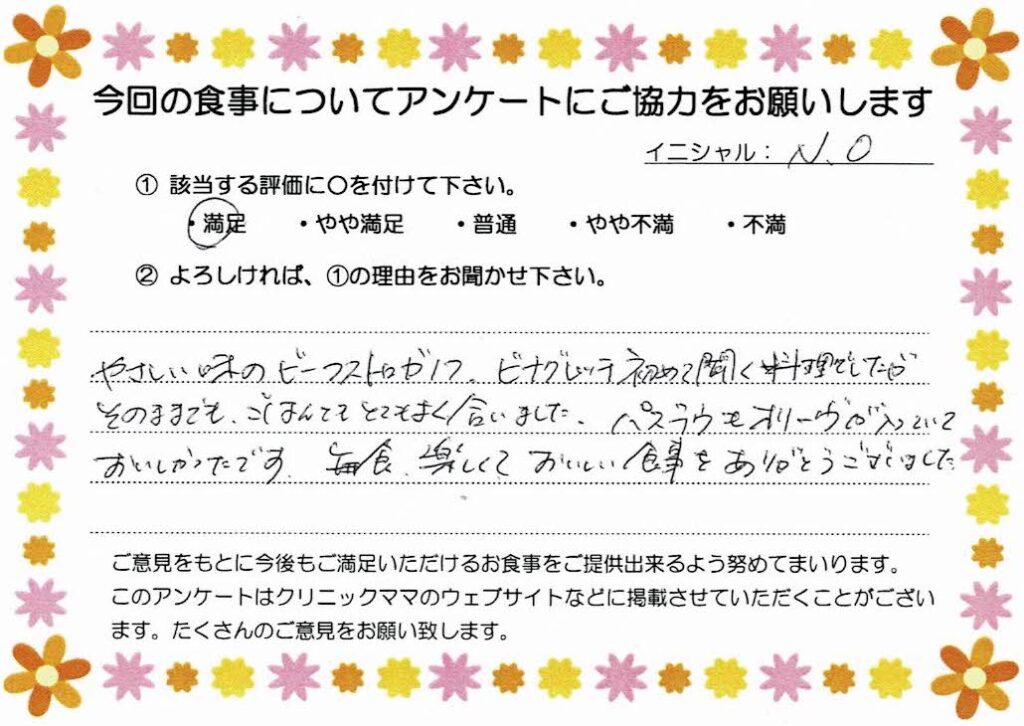 今回の食事についてアンケートにご協力をお願いします
イニシャル: N.O
① 該当する評価に〇を付けて下さい。
・満足 ・やや満足 ・普通 ・やや不満 ・不満
② よろしければ、①の理由をお聞かせ下さい。
やさしい味のビーフストロガノフ。ビナグレッテ初めて聞く料理でしたが
そのままでも、ごはんでもとてもよく合いました、 もオリーヴが入っていて
おいしかったです。毎食、楽しくて おいしい食事をありがとうございました
ご意見をもとに今後もご満足いただけるお食事をご提供出来るよう努めてまいります。
このアンケートはクリニックママのウェブサイトなどに掲載させていただくことがござい
ます。たくさんのご意見をお願い致します。